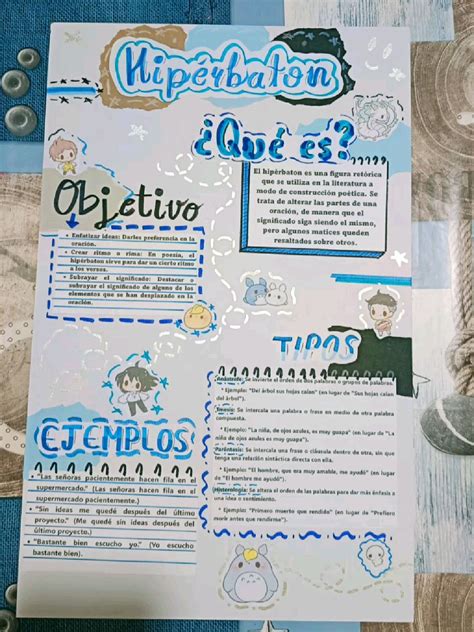 Hipérbaton
¿Qué es?
El hipérbaton es una figura retórica
que se utiliza en la literatura a
modo de construcción poética. Se
trata de alterar las partes de una
oración, de manera que el
significado siga siendo el mismo,
pero algunos matices queden
resaltados sobre otros.
Objetivo
• Enfatizar ideas: Darles preferencia en la
oración.
• Crear ritmo o rima: En poesía, el
hipérbaton sirve para dar un cierto ritmo
a los versos.
• Subrayar el significado: Destacar o
subrayar el significado de alguno de los
elementos que se han desplazado en la
oración.
TIPOS
Anástrofe: Se invierte el orden de dos palabras o grupos de palabras.
• Ejemplo: "Del árbol sus hojas caían" (en lugar de "Sus hojas caían
del árbol").
Tmesis: Se intercala una palabra o frase en medio de otra palabra
compuesta.
• Ejemplo: "La niña, de ojos azules, es muy guapa" (en lugar de "La
niña de ojos azules es muy guapa").
Paréntesis: Se intercala una frase o cláusula dentro de otra, sin que
tenga una relación sintáctica directa con ella.
• Ejemplo: "El hombre, que era muy amable, me ayudó" (en lugar
de "El hombre me ayudó").
Se altera el orden de las palabras para dar más énfasis a
una idea o sentimiento.
• Ejemplo: "Primero muerto que rendido" (en lugar de "Prefiero
morir antes que rendirme").
EJEMPLOS
• "Las señoras pacientemente hacen fila en el
supermercado." (Las señoras hacen fila en el
supermercado pacientemente.)
• "Sin ideas me quedé después del último
proyecto." (Me quedé sin ideas después del
último proyecto.)
• "Bastante bien escucho yo." (Yo escucho
bastante bien).